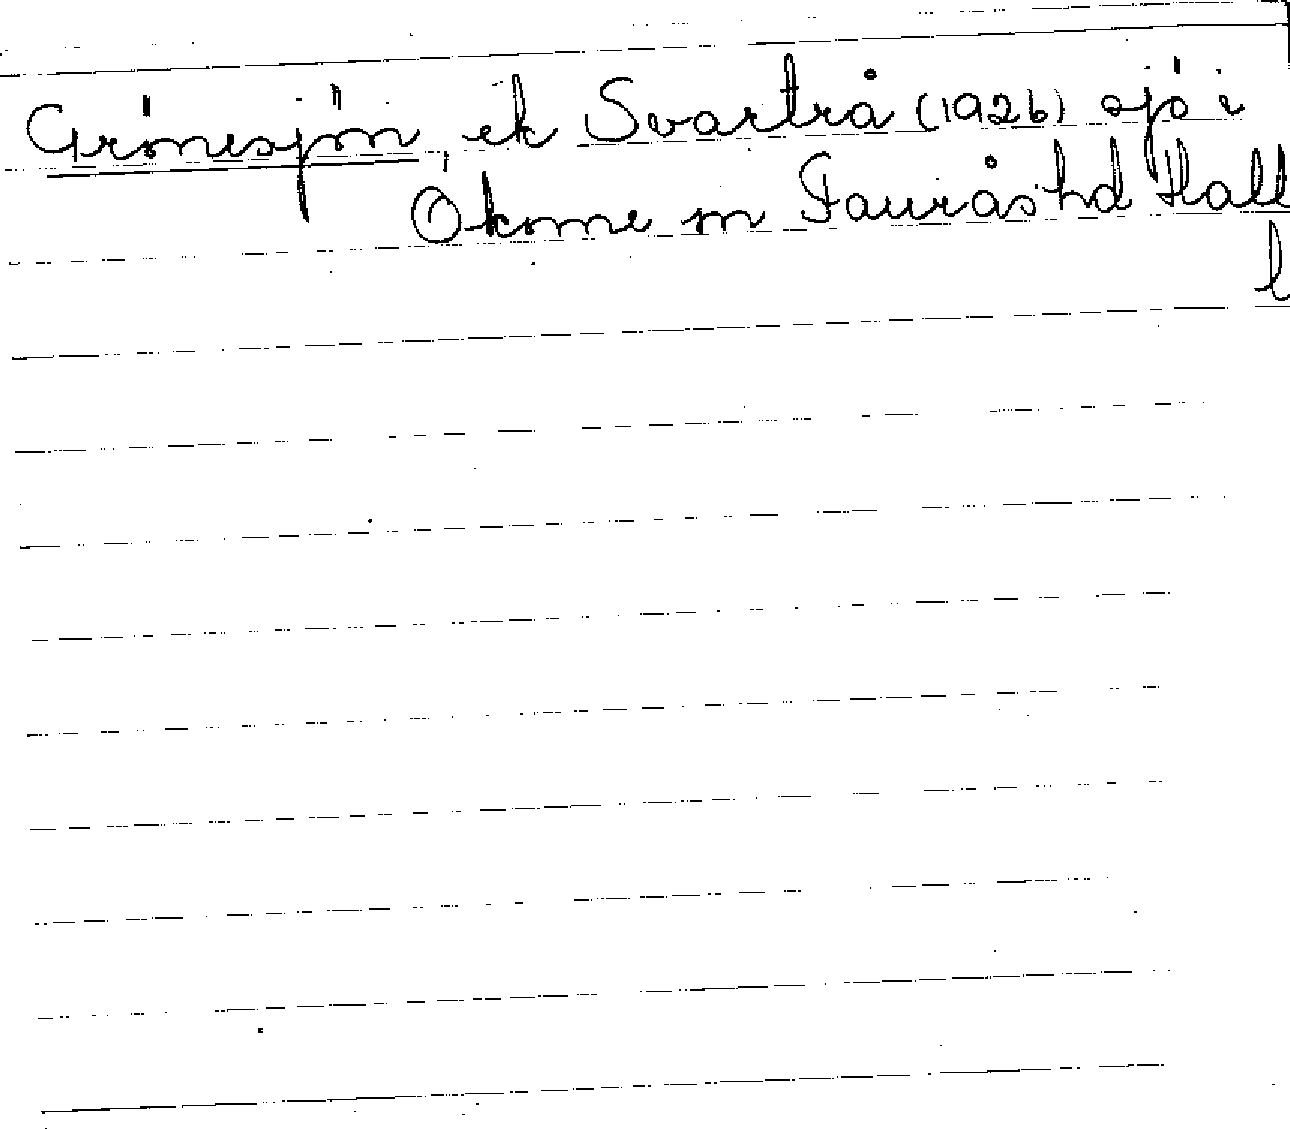 Grönesjön, ek Svartrå (1926) sjö i
Ökome sn Faurås hd Hall
l